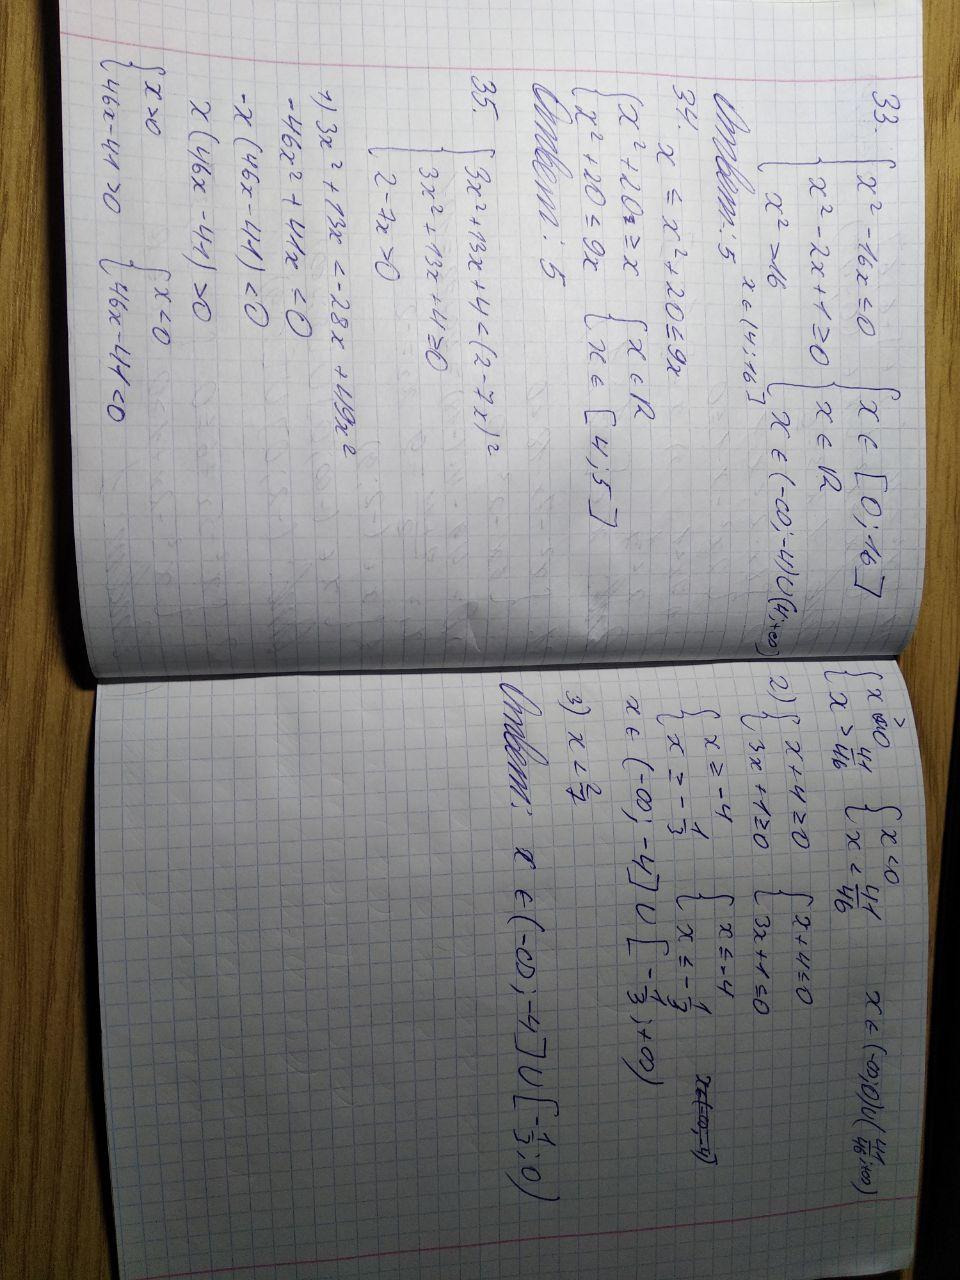 33. { x² - 16x ≤ 0 { x ∈ [0; 16]
{ x² - 2x + 1 ≥ 0 { x ∈ R
{ x² > 16 { x ∈ (-∞; -4) ∪ (4; +∞)
Ответ: 5 x ∈ (4; 16]
34. x ≤ x² + 20 ≤ 9x
{ x² + 20 ≥ x { x ∈ R
{ x² + 20 ≤ 9x { x ∈ [4; 5]
Ответ: 5
35. { 3x² + 13x + 4 < (2 - 7x)²
{ 3x² + 13x + 4 ≥ 0
{ 2 - 7x > 0
1) 3x² + 13x < -28x + 49x²
-46x² + 41x < 0
-x (46x - 41) < 0
x (46x - 41) > 0
{ x > 0 { x < 0
{ 46x - 41 > 0 { 46x - 41 < 0
{ x > 0 { x < 0 x ∈ (-∞; 0) ∪ (41/46; +∞)
{ x > 41/46 { x < 41/46
2) { x + 4 ≥ 0 { x + 4 ≤ 0
{ 3x + 1 ≥ 0 { 3x + 1 ≤ 0
{ x ≥ -4 { x ≤ -4
{ x ≥ -1/3 { x ≤ -1/3
x ∈ (-∞; -4] ∪ [-1/3; +∞)
3) x < 2/7
Ответ: x ∈ (-∞; -4] ∪ [-1/3; 0)